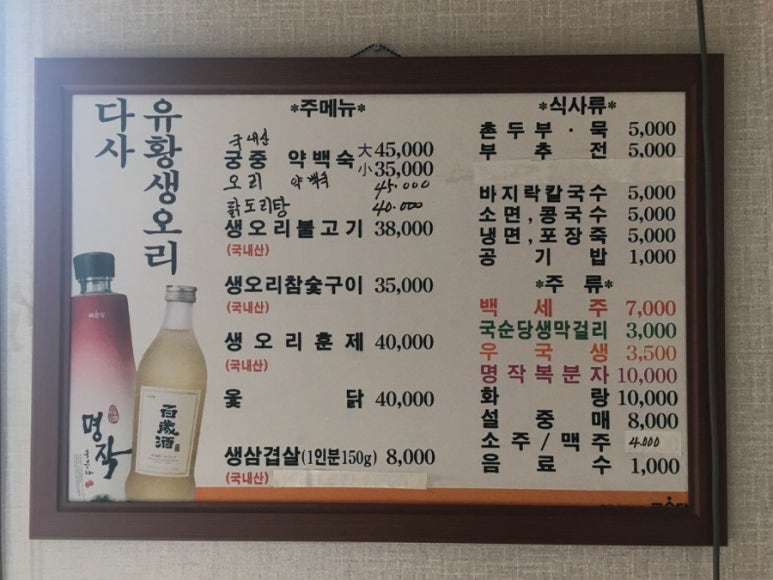 유황생오리
다사
*주메뉴*
국내산
궁중 약백숙 大 45,000
小 35,000
오리 약백숙 45.000
닭도리탕 40.000
생오리불고기 38,000
(국내산)
생오리참숯구이 35,000
(국내산)
생오리훈제 40,000
(국내산)
옻닭 40,000
생삼겹살(1인분150g) 8,000
(국내산)
*식사류*
촌두부·묵 5,000
부추전 5,000
바지락칼국수 5,000
소면,콩국수 5,000
냉면,포장죽 5,000
공기밥 1,000
*주류*
백세주 7,000
국순당생막걸리 3,000
우국생 3,500
명작복분자 10,000
화랑 10,000
설중매 8,000
소주/맥주 4.000
음료수 1,000
명작
百歲酒